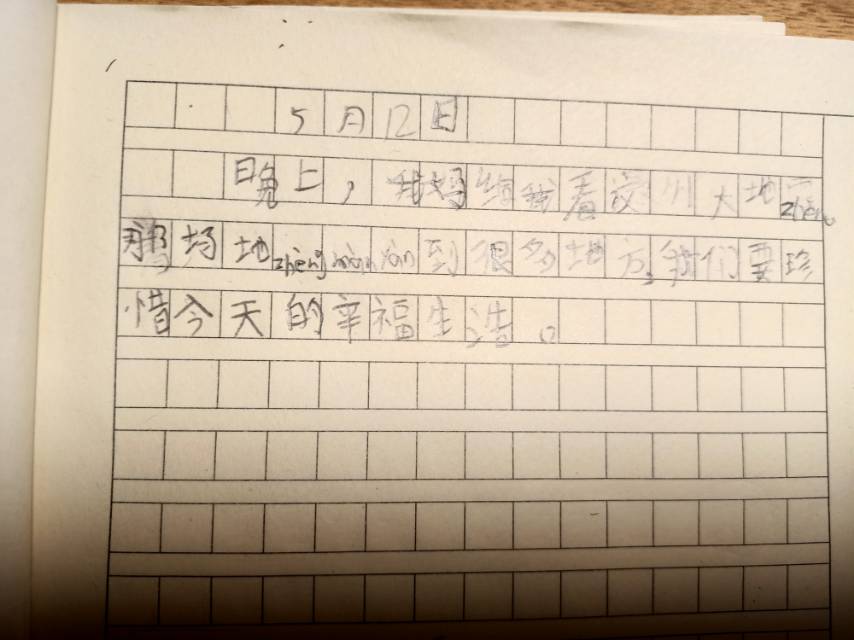 5月12日
晚上，我妈给我看汶川大地zhèn。
那场地zhèng màn yán到很多地方。我们要珍
惜今天的辛福生活。